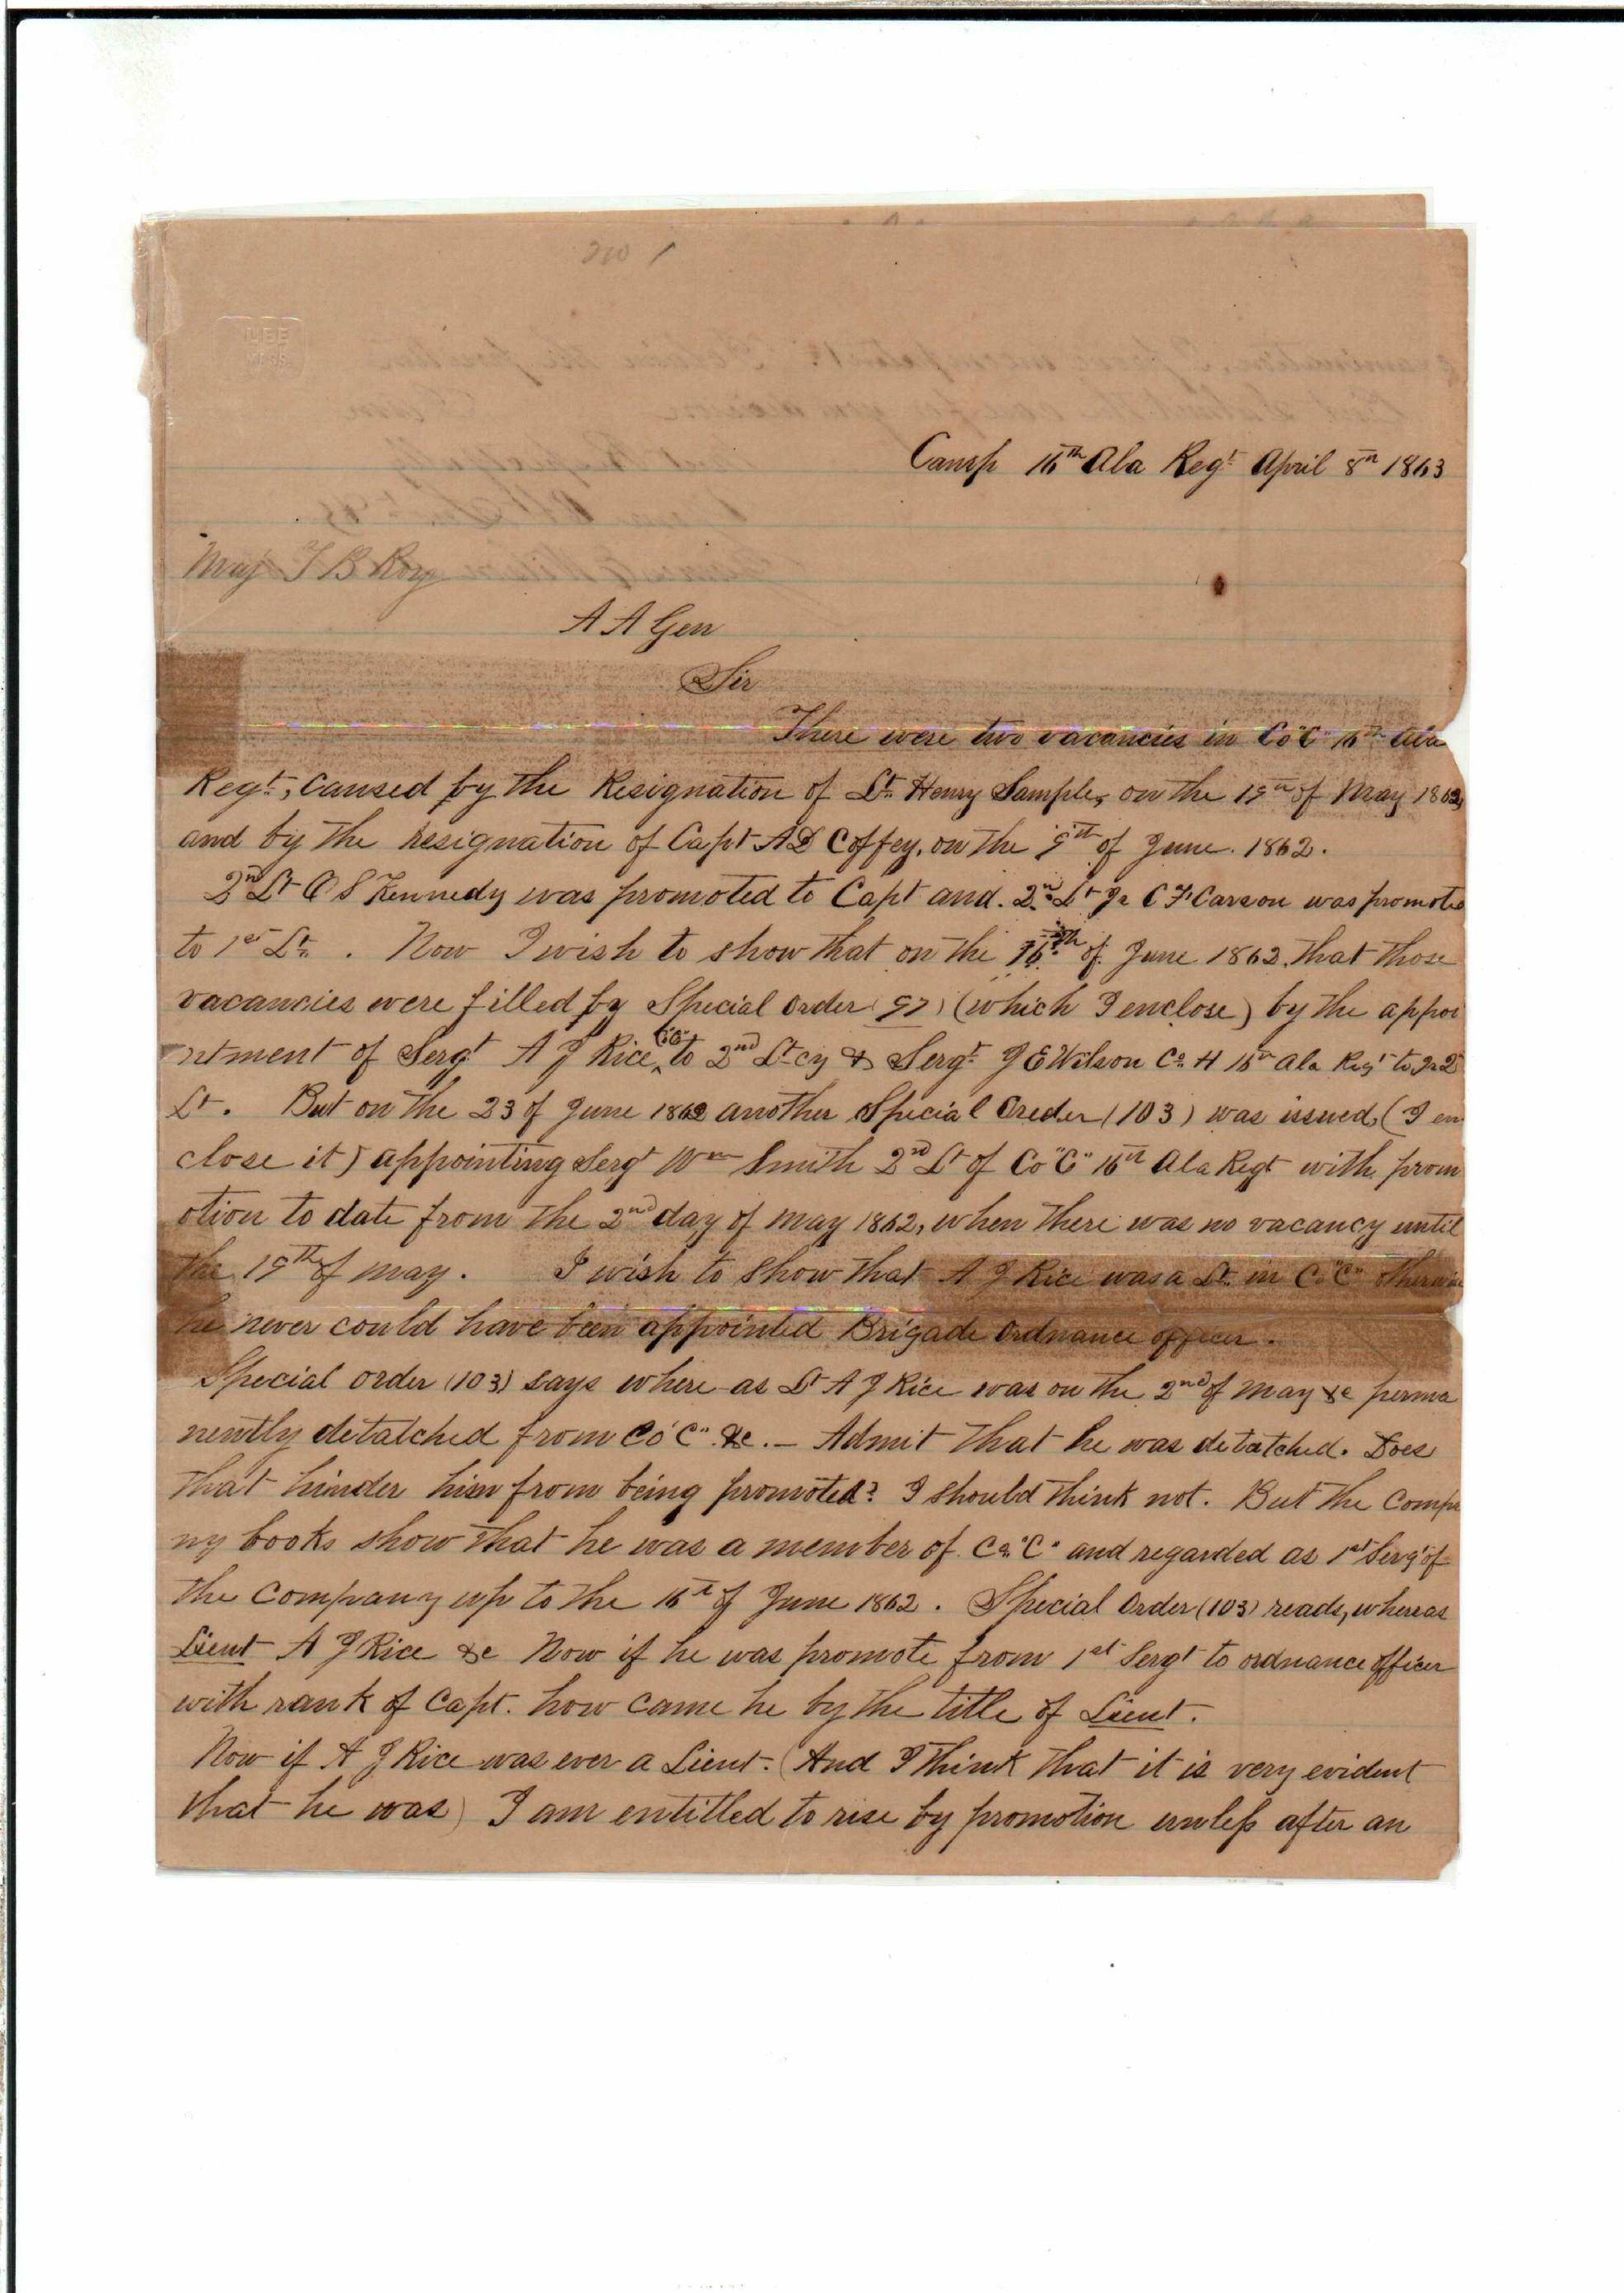 No 1
LEE
MASS.
Camp 16th Ala Regt April 8th 1863
Maj T B Roy
A A Gen
Sir
There were two vacancies in Co "C" 16th Ala
Regt, caused by the Resignation of Lt Henry Sample, on the 19th of May 1862,
and by the resignation of Capt A D Coffey, on the 9th of June. 1862.
2nd Lt O S Kennedy was promoted to Capt and. 2nd Lt Jr C F Carson was promote
to 1st Lt. Now I wish to show that on the 16th of June 1862, that those
vacancies were filled by Special Order (97) (which I enclose) by the appoi
ntment of Sergt A J Rice, "Co C" to 2nd Lt-cy & Sergt J E Wilson Co H 16th Ala Regt to Jr 2
Lt. But on the 23 of June 1862 another Special Oreder (103) was issued, (I en
close it) appointing Sergt Wm Smith 2nd Lt of Co "C" 16th Ala Regt with prom
otion to date from the 2nd day of may 1862, when there was no vacancy until
the 19th of may. I wish to show that A J Rice was a Lt in Co "C" otherwise
he never could have been appointed Brigade Ordnance officer.
Special order (103) says where as Lt A J Rice was on the 2nd of may &c perma
nently detatched from Co "C" &c. – Admit that he was detatched. Does
that hinder him from being promoted? I should think not. But the Compa
ny books show that he was a member of Co "C" and regarded as 1st Sergt of
the Company up to the 16th of June 1862. Special Order (103) reads, whereas
Lieut A J Rice &c Now if he was promote from 1st Sergt to ordnance officer
with rank of Capt. how came he by the title of Lieut.
Now if A J Rice was ever a Lieut. (And I think that it is very evident
that he was) I am entitled to rise by promotion unless after an